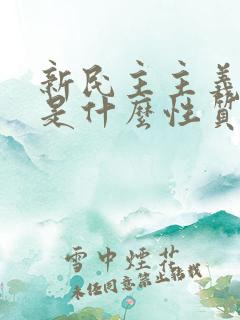 新民主主義
是什麼性質
雪中煙花
未经同意禁止转载